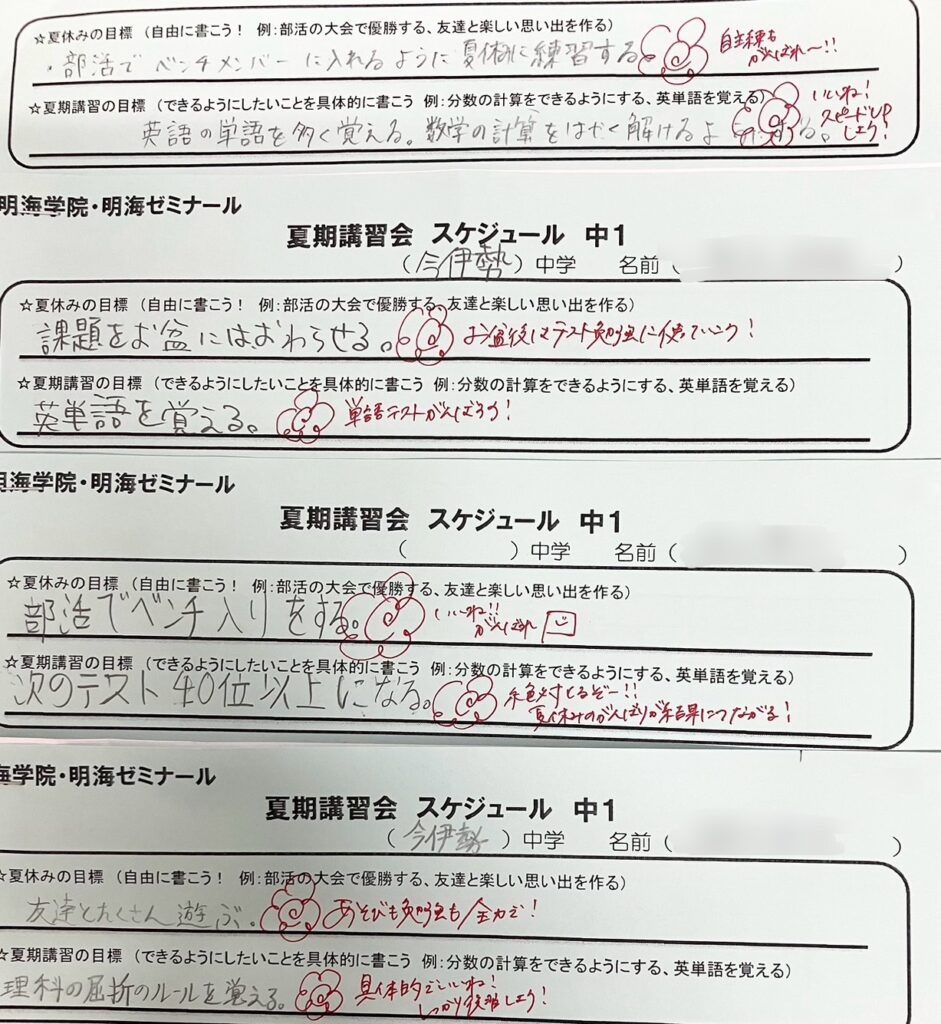 ☆夏休みの目標（自由に書こう！ 例：部活の大会で優勝する、友達と楽しい思い出を作る）
・部活で ベンチメンバーに入れるように夏休みに練習する。 自主練も がんばれ〜!!
☆夏期講習の目標（できるようにしたいことを具体的に書こう 例：分数の計算をできるようにする、英単語を覚える）
英語の単語を多く覚える。数学の計算をはやく解けるよ る。 いいね! スピードUP しよう!
明海学院・明海ゼミナール
夏期講習会 スケジュール 中1
（今伊勢）中学 名前（ ）
☆夏休みの目標（自由に書こう！ 例：部活の大会で優勝する、友達と楽しい思い出を作る）
課題をお盆にはおわらせる。 お盆後はテスト勉強に使っていこう!
☆夏期講習の目標（できるようにしたいことを具体的に書こう 例：分数の計算をできるようにする、英単語を覚える）
英単語を覚える。 単語テストがんばろう!
明海学院・明海ゼミナール
夏期講習会 スケジュール 中1
（ ）中学 名前（ ）
☆夏休みの目標（自由に書こう！ 例：部活の大会で優勝する、友達と楽しい思い出を作る）
部活でベンチ入りをする。 いいね!! がんばれ
☆夏期講習の目標（できるようにしたいことを具体的に書こう 例：分数の計算をできるようにする、英単語を覚える）
次のテスト40位以上になる。 絶対とるぞー!! 夏休みのがんばりが結果につながる!
海学院・明海ゼミナール
夏期講習会 スケジュール 中1
（今伊勢）中学 名前（ ）
☆夏休みの目標（自由に書こう！ 例：部活の大会で優勝する、友達と楽しい思い出を作る）
友達とたくさん遊ぶ。 あそびも勉強も全力で!
☆夏期講習の目標（できるようにしたいことを具体的に書こう 例：分数の計算をできるようにする、英単語を覚える）
理科の屈折のルールを覚える。 具体的でいいね! しっかり復習しよう!